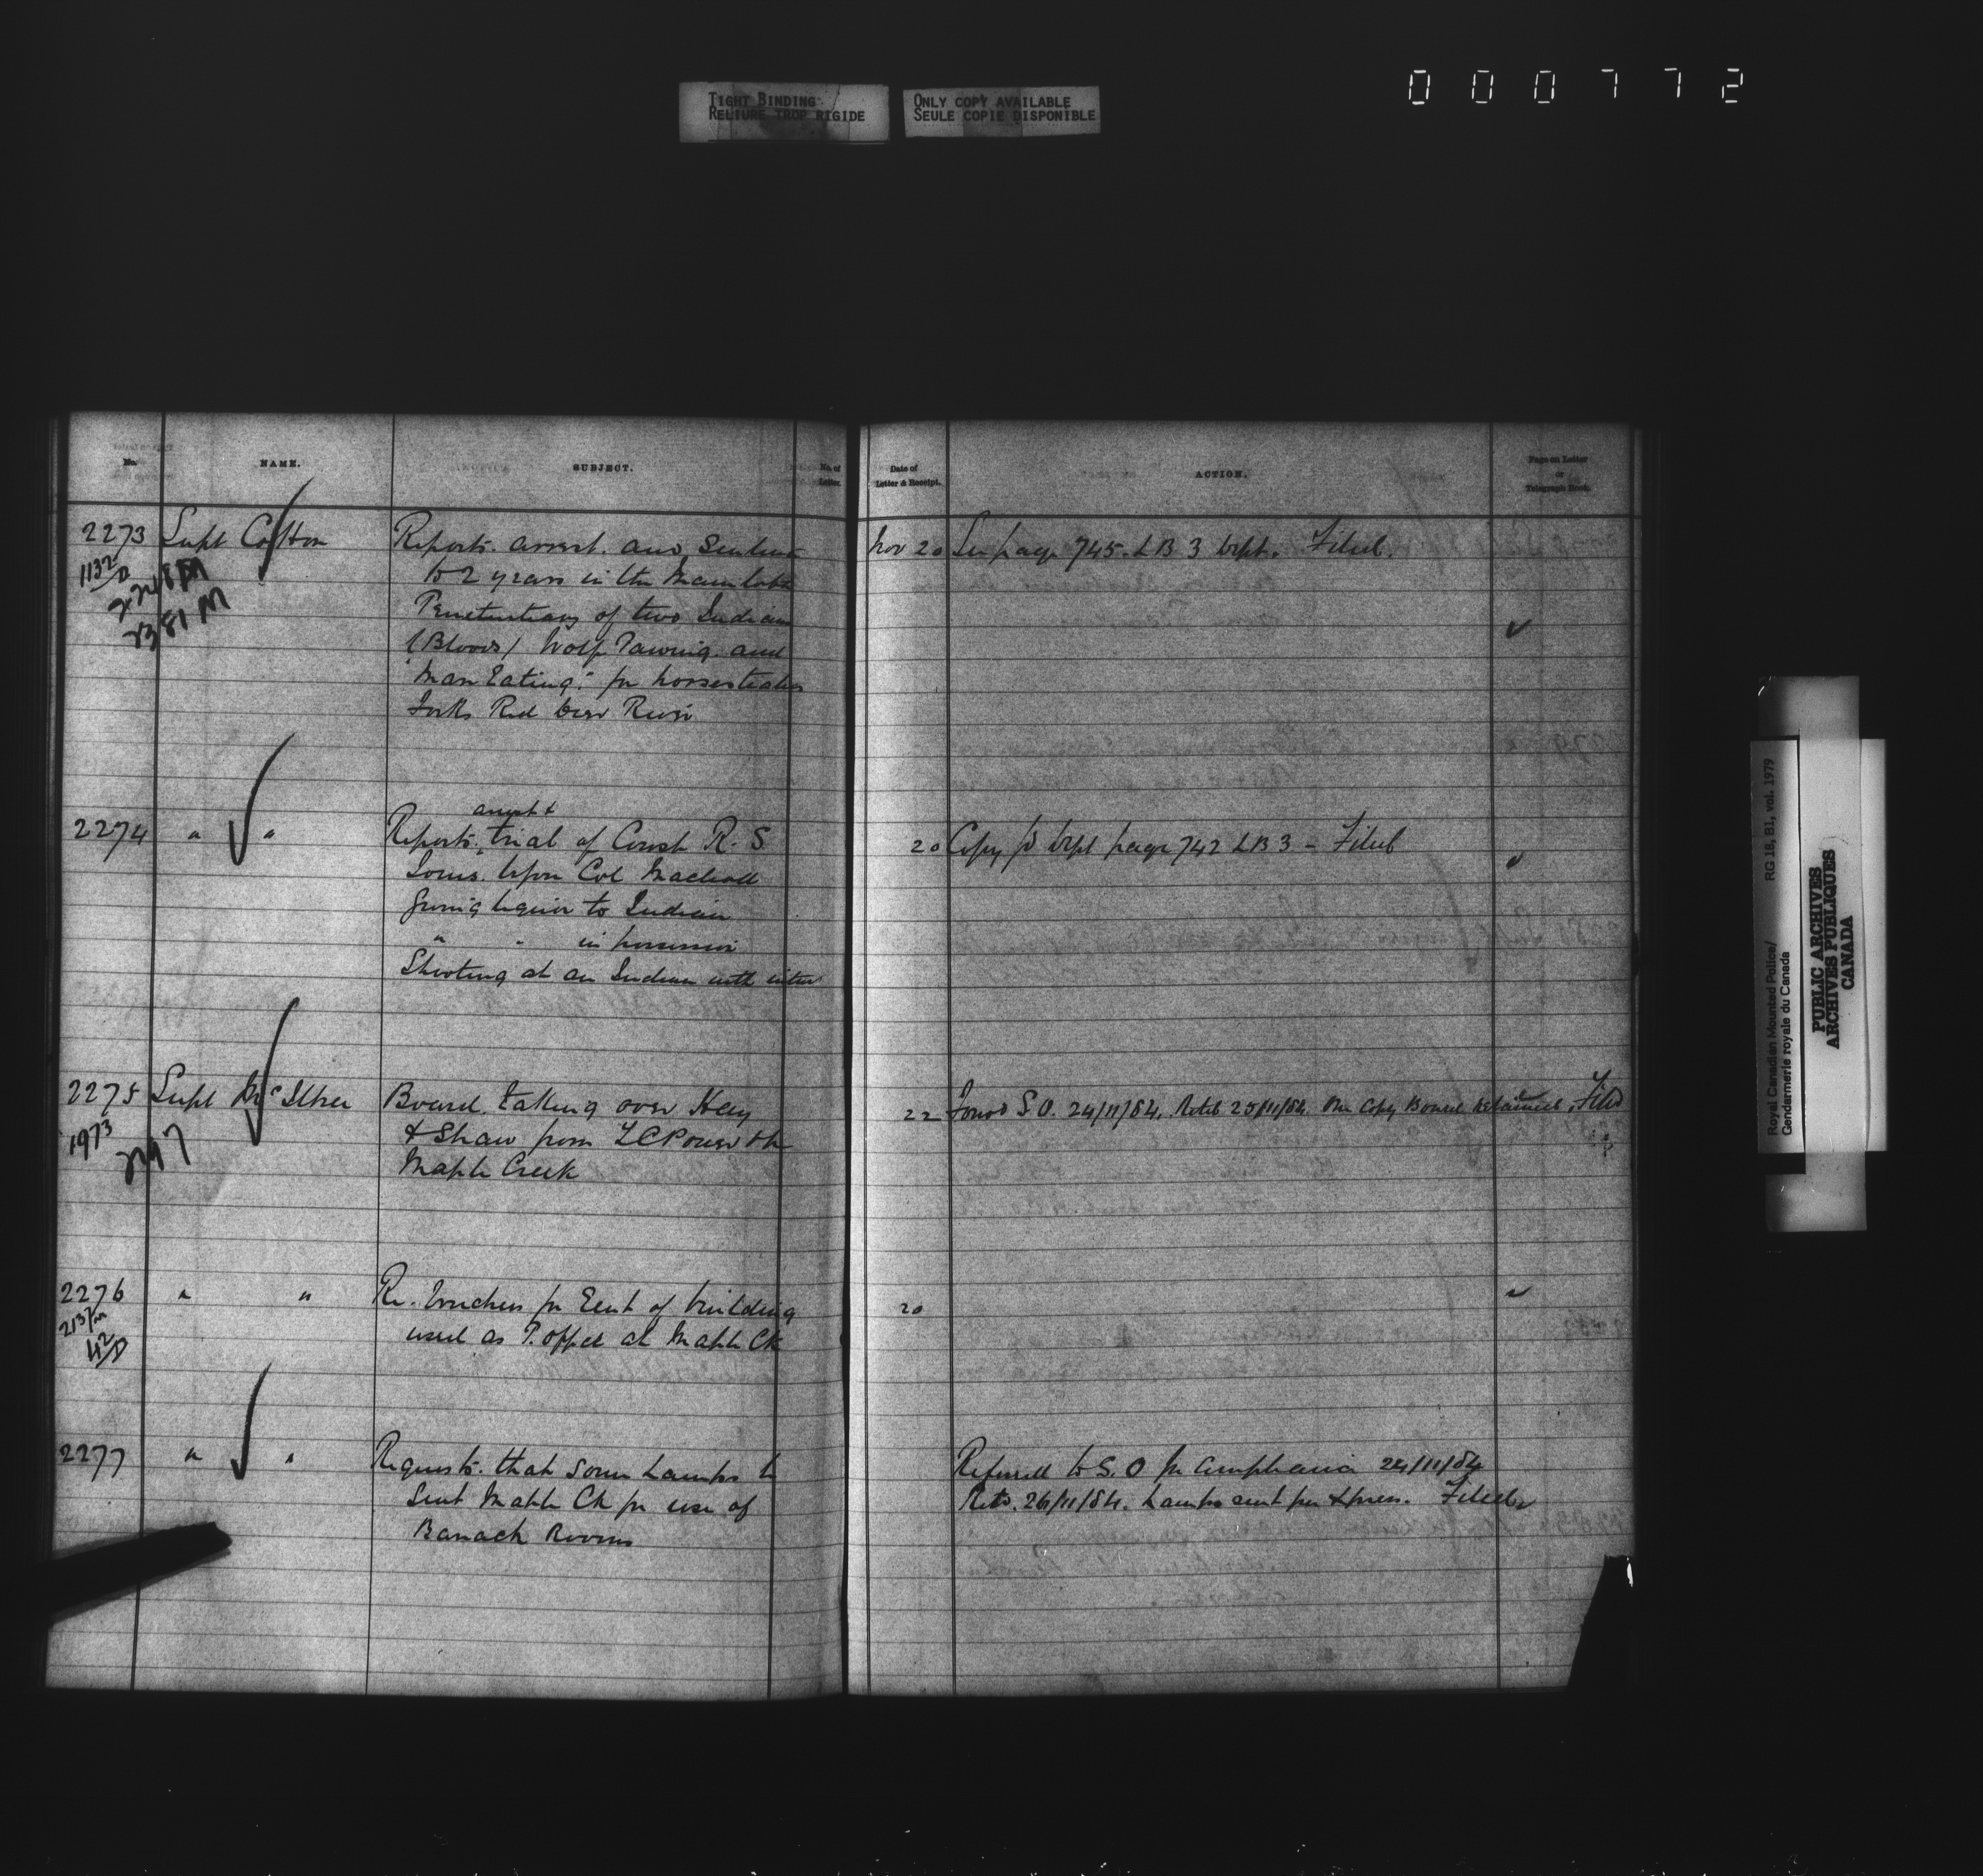 000772
TIGHT BINDING
RELIURE TROP RIGIDE
ONLY COPY AVAILABLE
SEULE COPIE DISPONIBLE
No.
NAME.
SUBJECT.
No. of
Letter.
Date of
Letter & Receipt.
ACTION.
Page on Letter
or
Telegraph Book.
2273 Supt Cotton
1132/D
2381 M
Reports. arrest. and Sentence
to 2 years in the Manitoba
Penetentiary of two Indians
(Bloods) Wolf and
"Man Eating" for horsestealing
Forks Red Deer River
Nov 20 See page 745. LB 3 Dept. Filed.
2274 " "
arrest &
Reports. trial of Const R. S
upon Col Macleod
Giving liquor to Indian
" " in possession
Shooting at an Indian with inten
20 Copy to Dept page 742 LB 3 - Filed
2275 Supt McIllree
1973
Board. taking over Hay
& Straw from
Maple Creek
22 Forwd S.O. 24/11/84. Retd 25/11/84. One Copy Board Retained. Filed
2276 " "
213/m
42/D
Re. Vouchers for Rent of building
used as P. office at Maple Ck
20
2277 " "
Requests. that some Lamps be
Sent Maple Ck for use of
Barrack Rooms
Referred to S. O for compliance 24/11/84
Retd. 26/11/84. Lamps sent per Xpress. Filed
Royal Canadian Mounted Police/ RG 18, B1, vol. 1979
Gendarmerie royale du Canada
PUBLIC ARCHIVES
ARCHIVES PUBLIQUES
CANADA